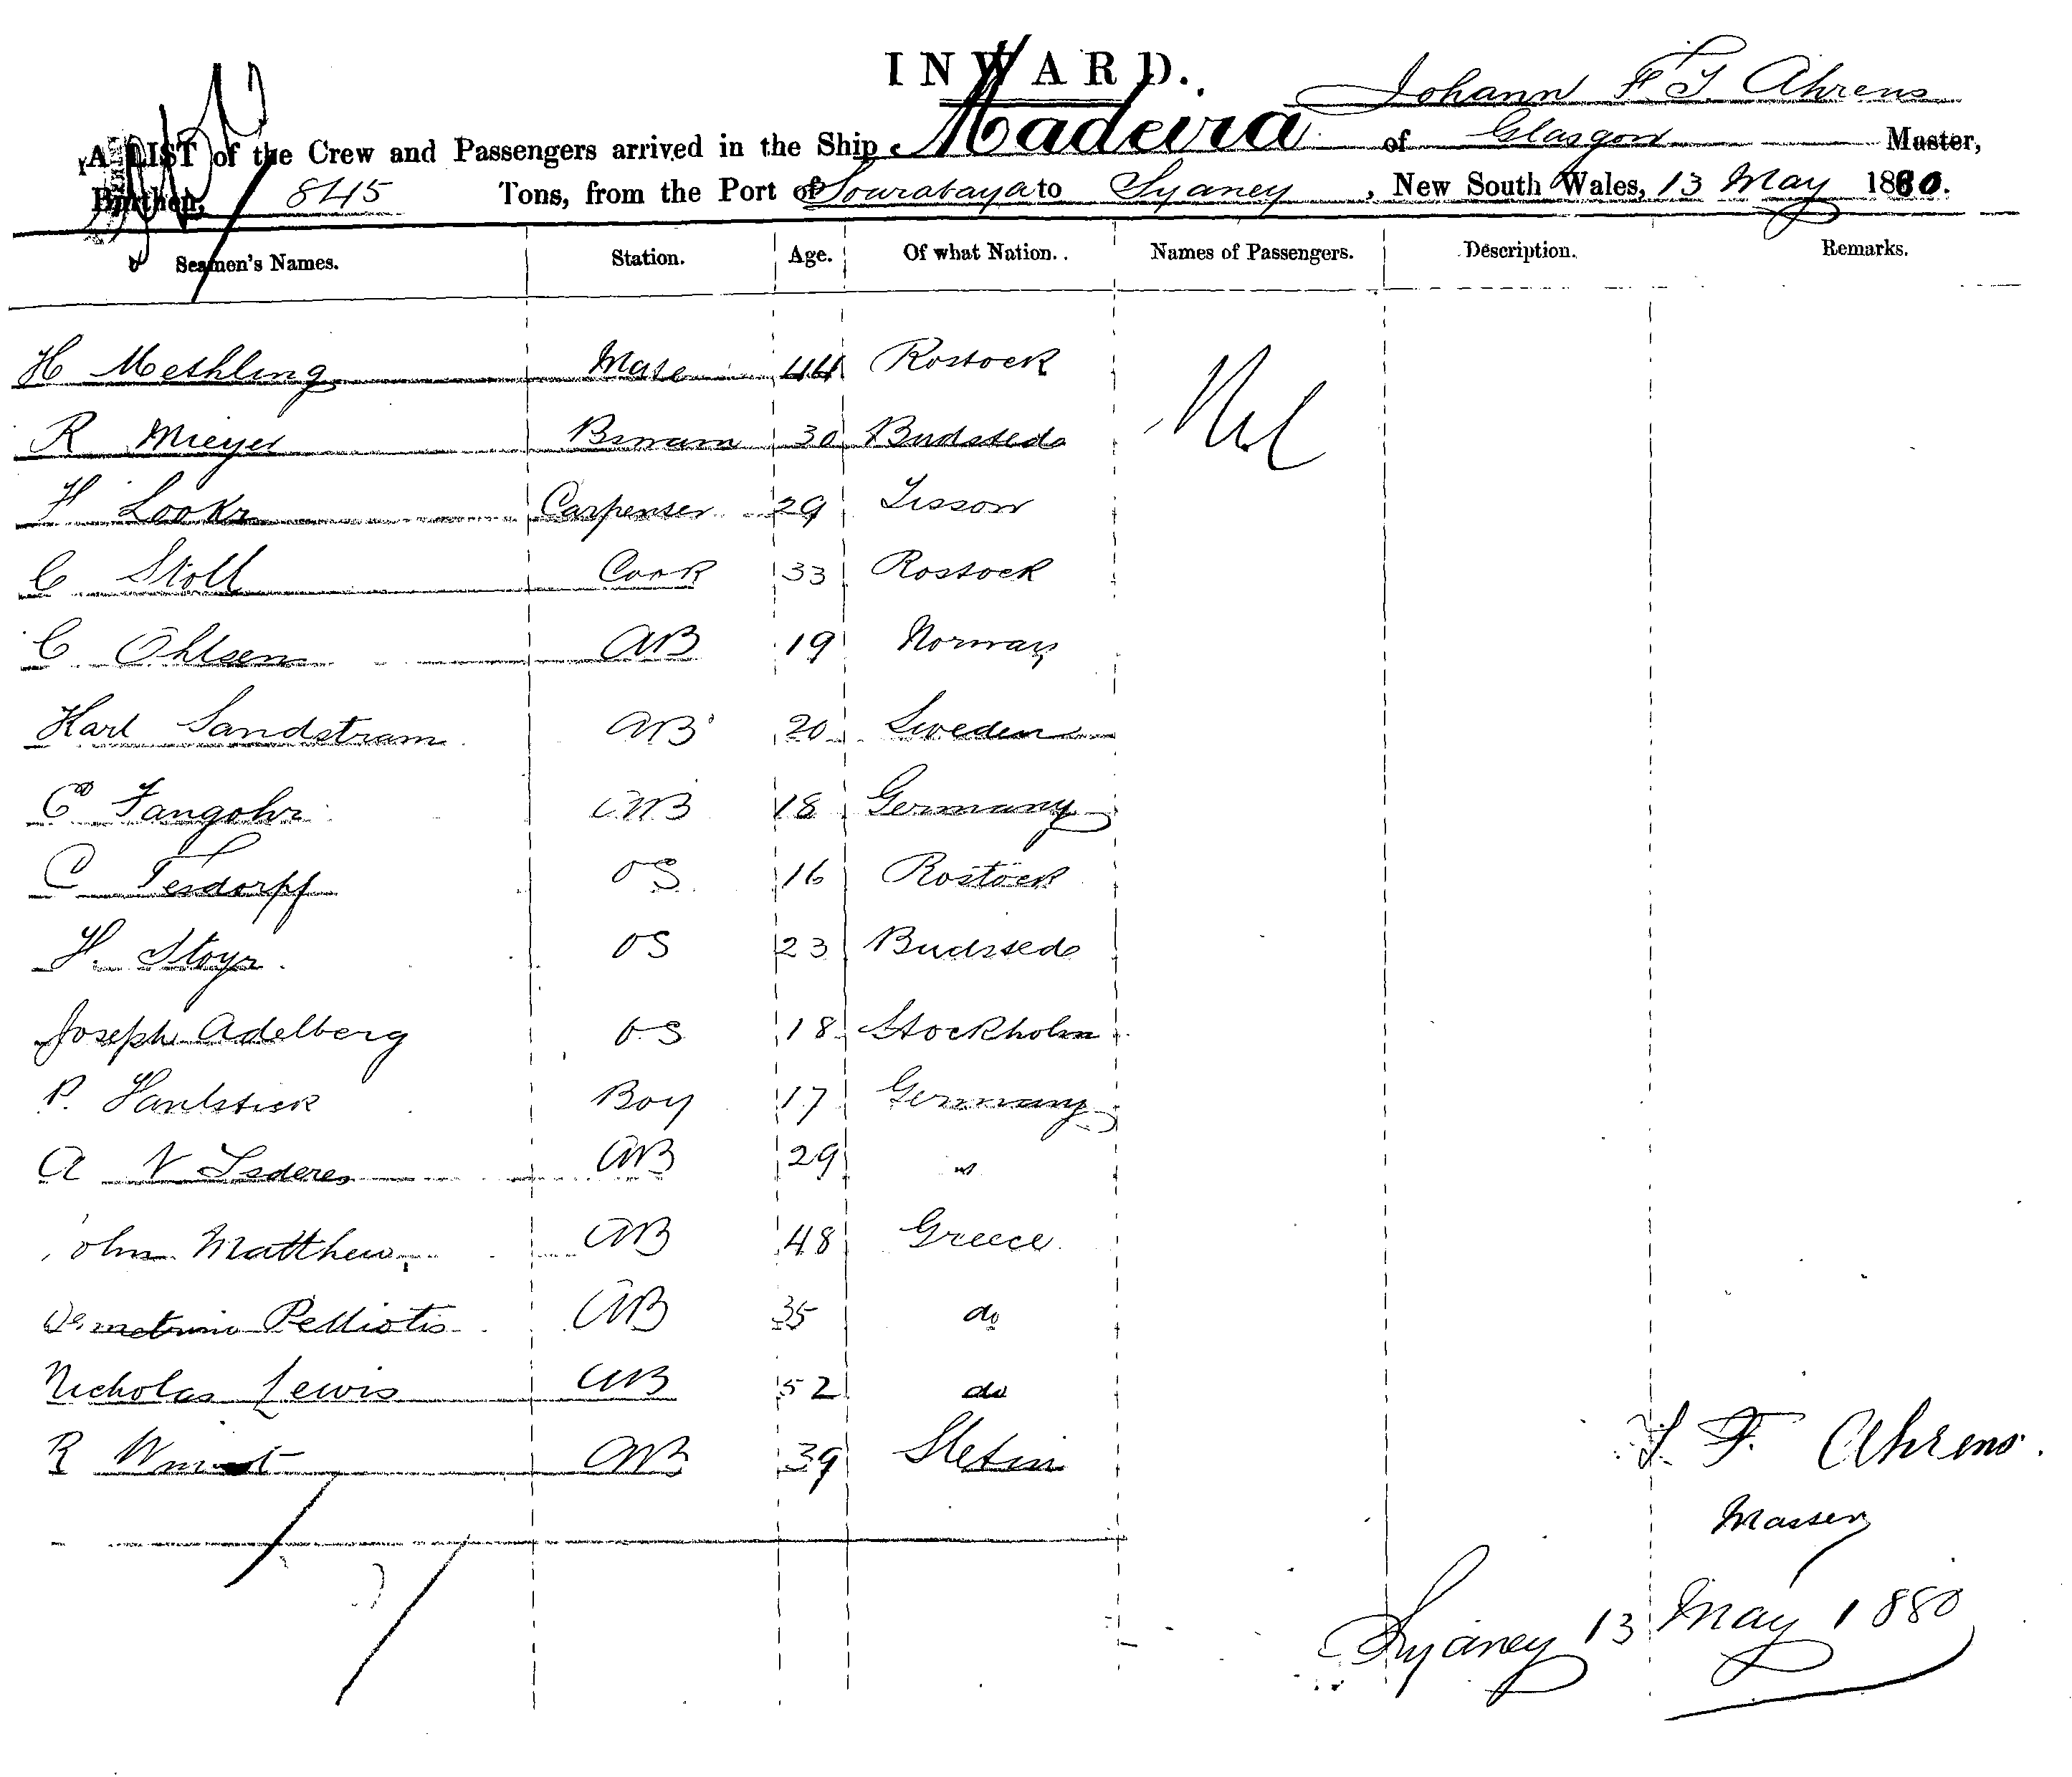 INWARD.
Johann F. J. Ahrens
A LIST of the Crew and Passengers arrived in the Ship Madeira of Glasgow Master,
Burthen, 845 Tons, from the Port of Sourabaya to Sydney, New South Wales, 13 May 1880.
Seamen's Names. Station. Age. Of what Nation. Names of Passengers. Description. Remarks.
H Methling Mate 44 Rostock Nil
R Mieyer 30
H Carpenter 29
C Stoll Cook 33 Rostock
C Ohlsen AB 19 Norway
Karl Sandstram AB 20 Sweden
C Fangohr AB 18 Germany
C Tesdorpf OS 16 Rostock
H. OS 23
Joseph Adelberg OS 18 Stockholm
P. Boy 17 Germany
A AB 29 "
John Matthew AB 48 Greece
AB 35 do
Nicholas Lewis AB 52 do
R AB 39 Stetin
J. F. Ahrens.
Master
Sydney 13 May 1880